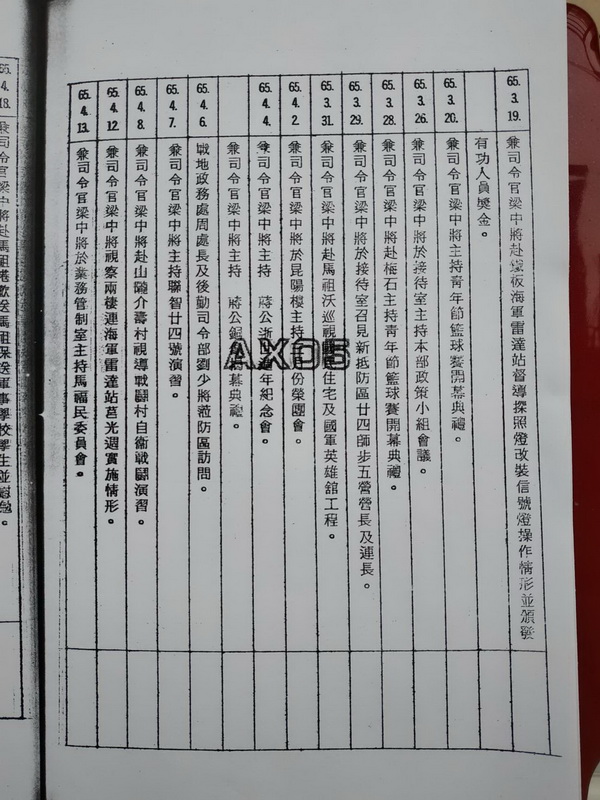 65.3.19. 兼司令官梁中將赴鐵板海軍雷達站督導探照燈改裝信號燈操作情形並頒發
有功人員獎金。
65.3.20. 兼司令官梁中將主持青年節籃球賽開幕典禮。
65.3.26. 兼司令官梁中將於接待室主持本部政策小組會議。
65.3.28. 兼司令官梁中將赴梅石主持青年節籃球賽開幕典禮。
65.3.29. 兼司令官梁中將於接待室召見新抵防區廿四師步五營營長及連長。
65.3.31. 兼司令官梁中將赴馬祖沃巡視 住宅及國軍英雄舘工程。
65.4.2. 兼司令官梁中將於昆陽樓主持 月份榮團會。
65.4.4. 兼司令官梁中將主持 蔣公逝 年紀念會。
兼司令官梁中將主持 蔣公銅 幕典禮。
65.4.6. 戰地政務處周處長及後勤司令部劉少將蒞防區訪問。
65.4.7. 兼司令官梁中將主持聯智廿四號演習。
65.4.8. 兼司令官梁中將赴山隴介壽村視導戰鬪村自衛戰鬪演習。
65.4.12. 兼司令官梁中將視察兩棲連海軍雷達站莒光週實施情形。
65.4.13. 兼司令官梁中將於業務管制室主持馬福民委員會。
65.4.18. 兼司令官梁中將赴馬祖港歡送馬祖保送軍事學校學生並 勉。
AX05